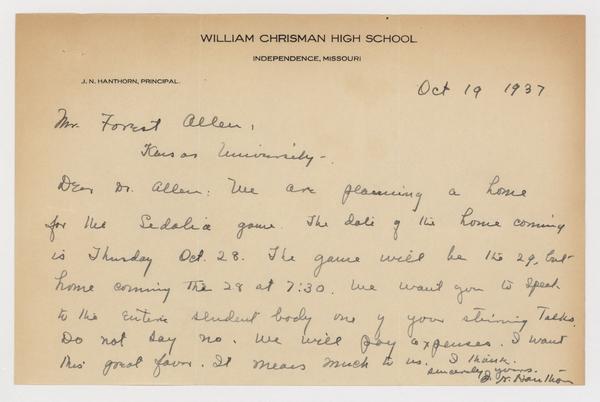 WILLIAM CHRISMAN HIGH SCHOOL
INDEPENDENCE, MISSOURI
J. N. HANTHORN, PRINCIPAL.
Oct 19 1937
Mr. Forest Allen,
Kansas University.
Dear Dr. Allen: We are planning a home
for the Sedalia game. The date of the home coming
is Thursday Oct. 28. The game will be the 29, but
home comming the 28 at 7:30. We want you to speak
to the entire student body one of your stirring Talks.
Do not say no. We will pay expenses. I want
this great favor. It means much to us. I thank.
sincerely yours.
J. N. Hanthorn